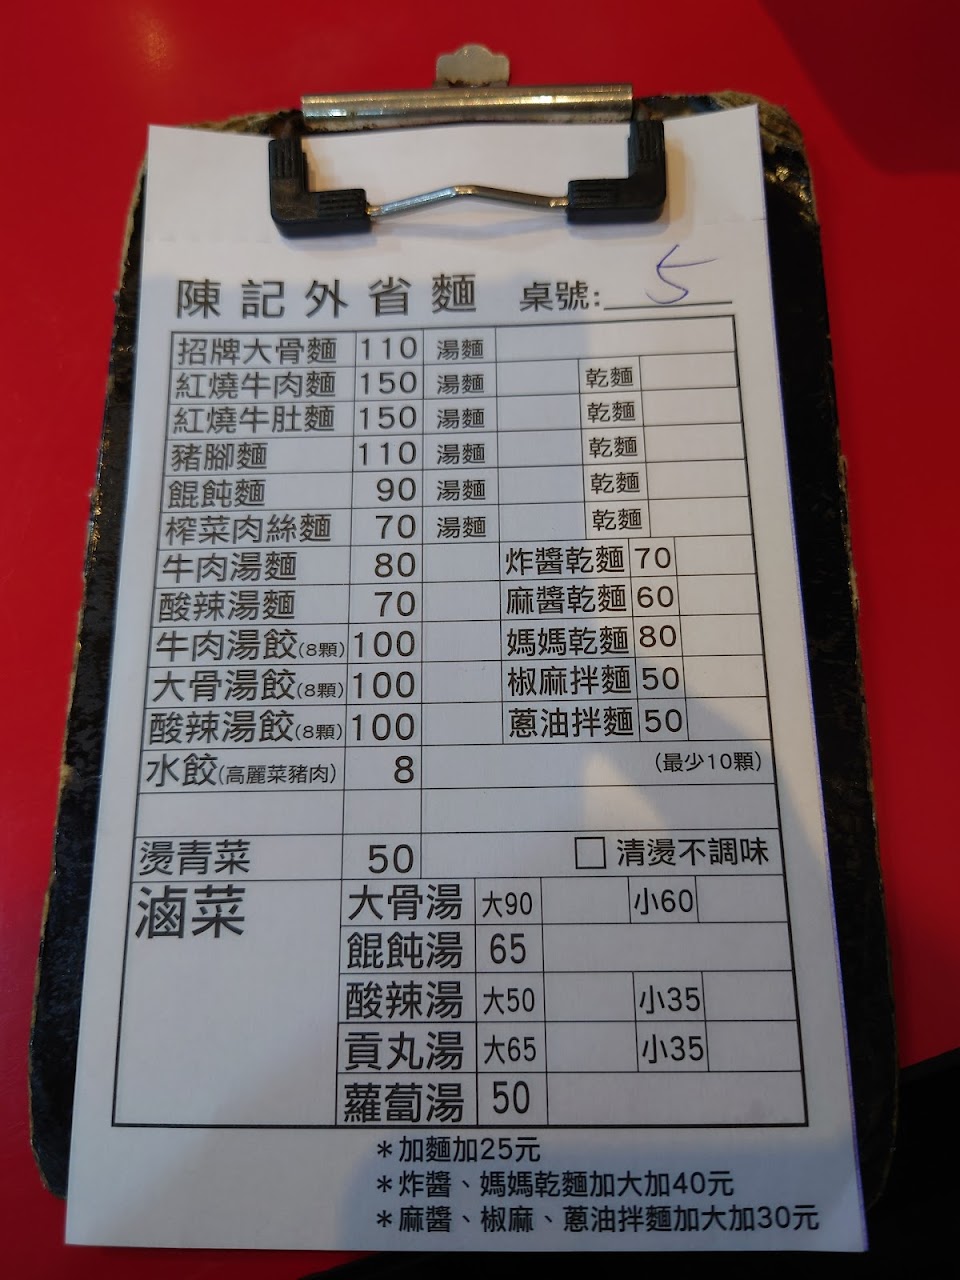 陳記外省麵 桌號: 5
招牌大骨麵 110 湯麵
紅燒牛肉麵 150 湯麵 乾麵
紅燒牛肚麵 150 湯麵 乾麵
豬腳麵 110 湯麵 乾麵
餛飩麵 90 湯麵 乾麵
榨菜肉絲麵 70 湯麵 乾麵
牛肉湯麵 80 炸醬乾麵 70
酸辣湯麵 70 麻醬乾麵 60
牛肉湯餃(8顆) 100 媽媽乾麵 80
大骨湯餃(8顆) 100 椒麻拌麵 50
酸辣湯餃(8顆) 100 蔥油拌麵 50
水餃(高麗菜豬肉) 8 (最少10顆)
燙青菜 50 □ 清燙不調味
滷菜 大骨湯 大90 小60
餛飩湯 65
酸辣湯 大50 小35
貢丸湯 大65 小35
蘿蔔湯 50
＊加麵加25元
＊炸醬、媽媽乾麵加大加40元
＊麻醬、椒麻、蔥油拌麵加大加30元